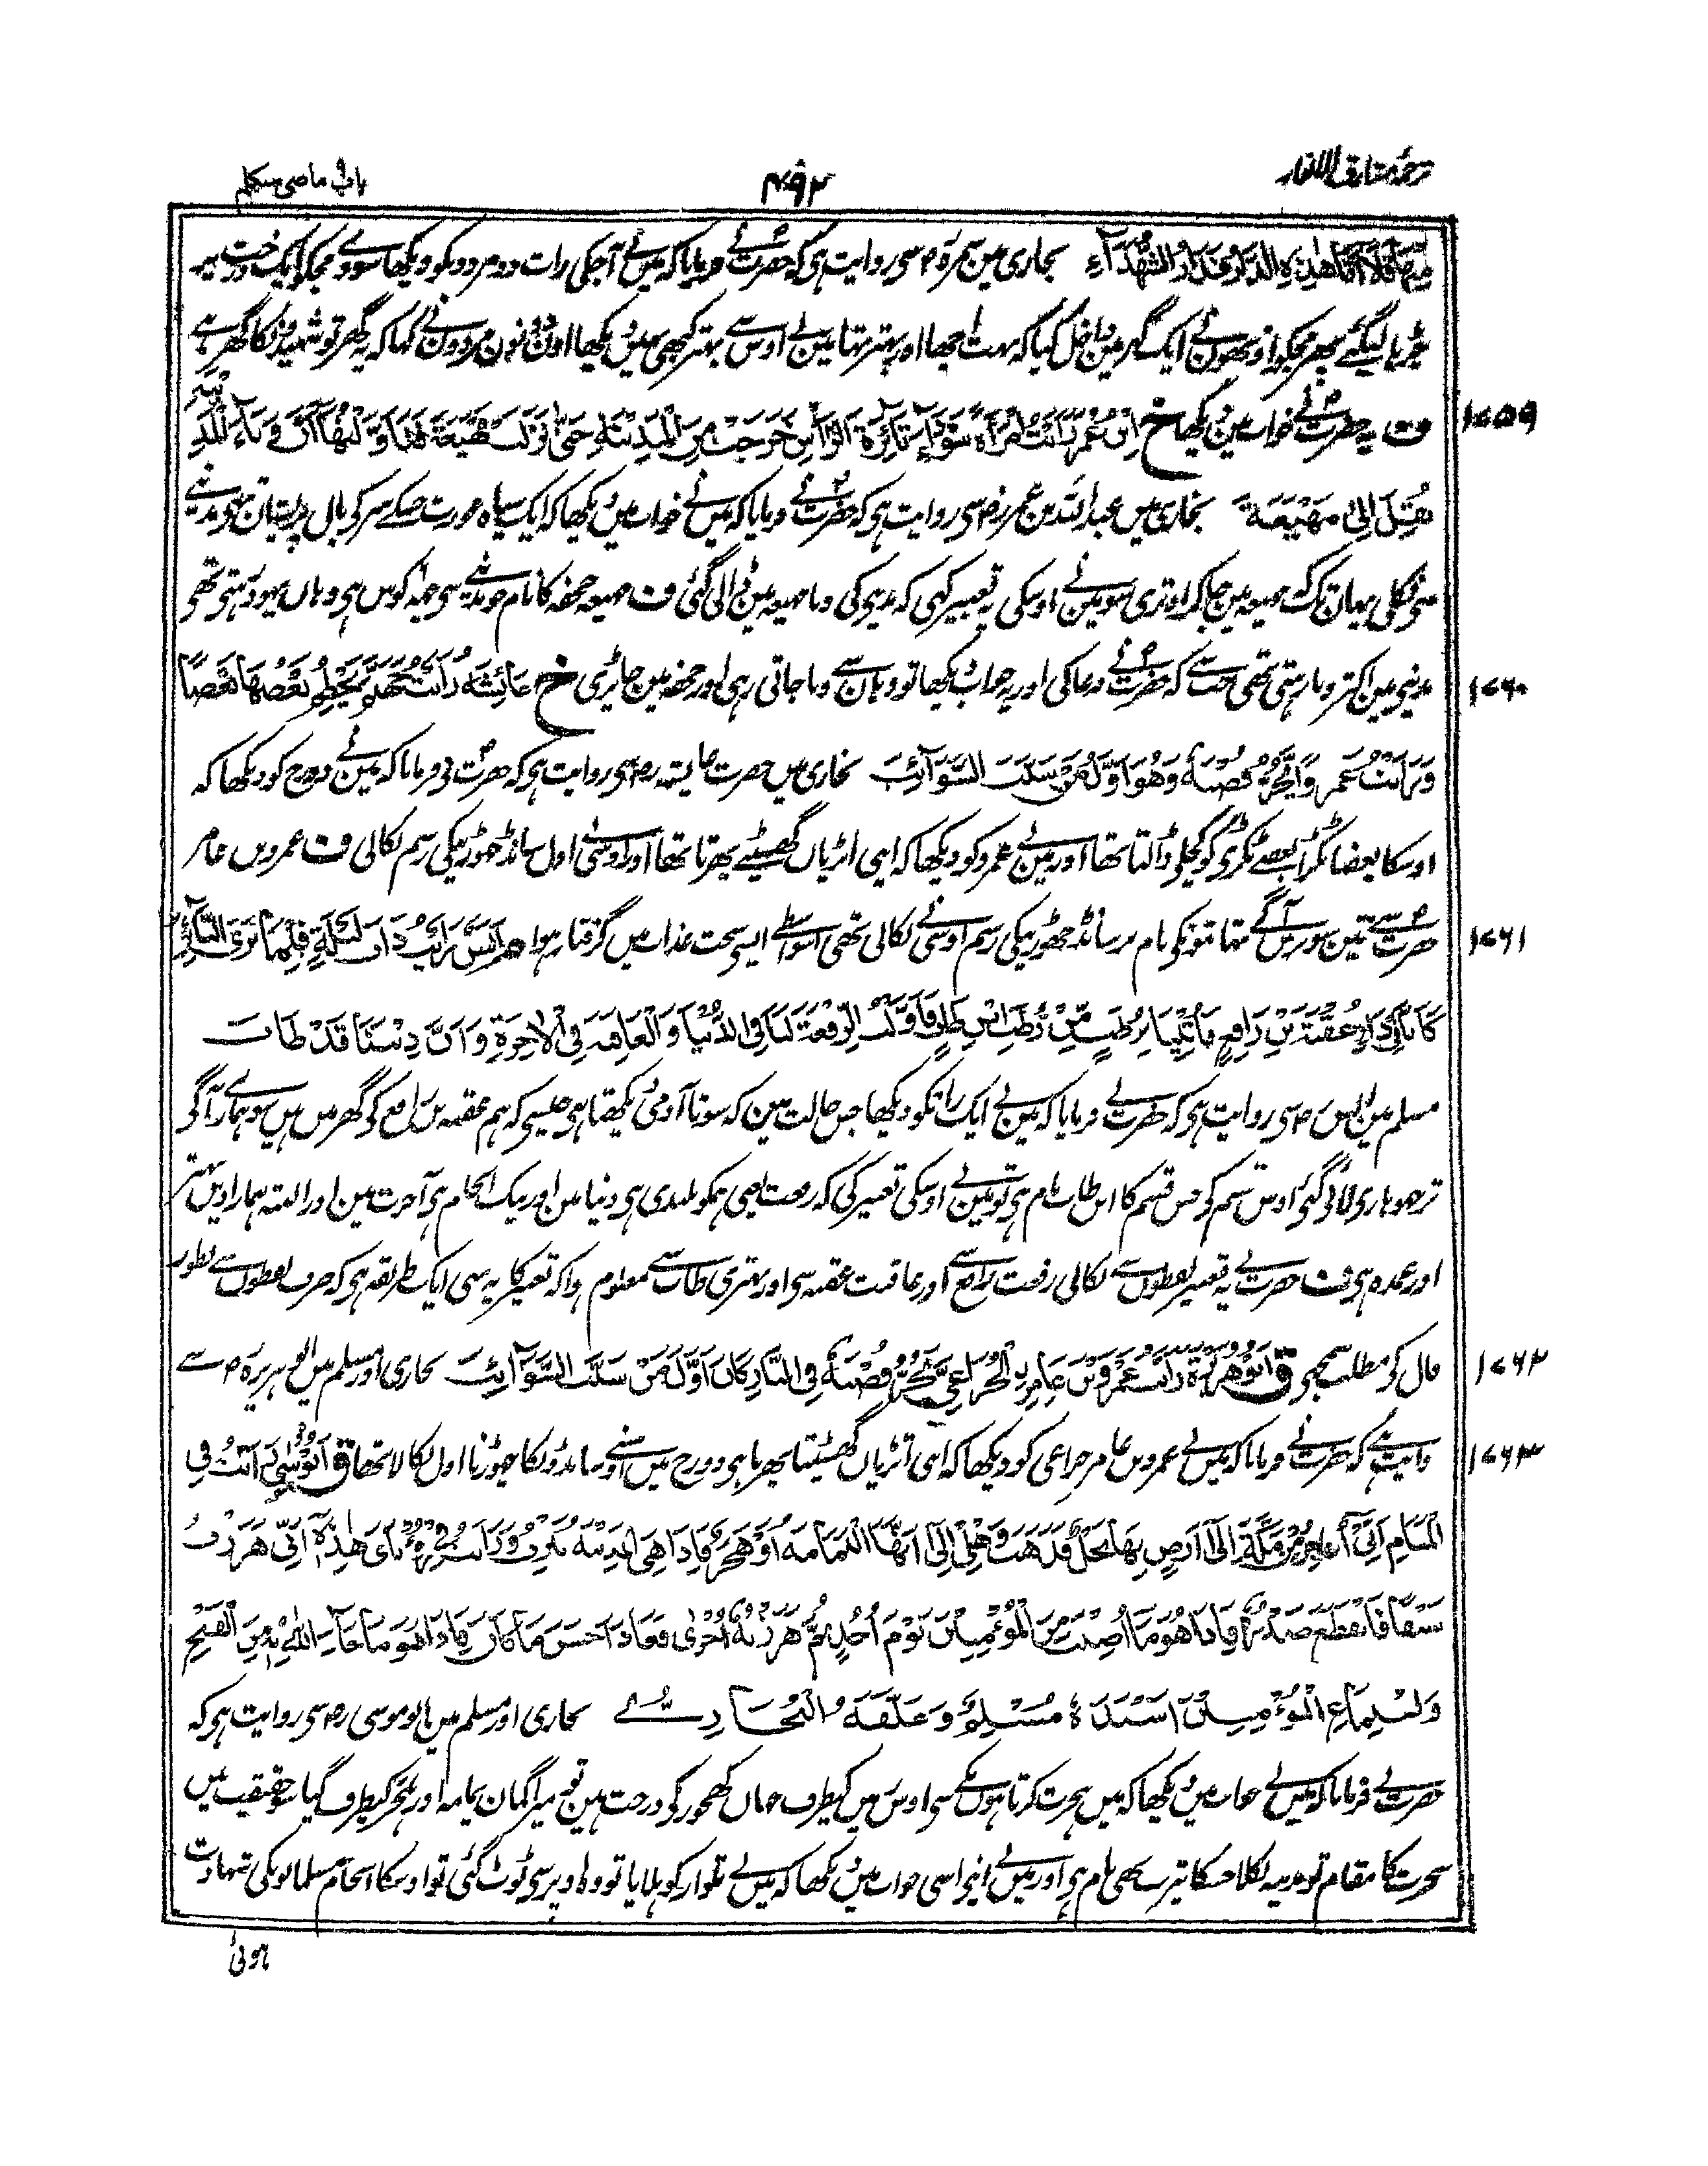 ترجمہ مشارق الانوار
۴۹۲
باب ماضی متکلم
مِنْهَا قَالَا اَمَّا هٰذِهِ الدَّارُ فَدَارُ الشُّهَدَآءِ بخاری مین سمرہ رض سی روایت ہی کہ حضرت نے فرمایا کہ مین نے آجکی رات دو مردو نکو دیکھا سو وے مجکو ایک درخت پر
چڑہا لیگئے پھر مجکو اونھون نے ایک گھر مین داخل کیا کہ بہت اچھا اور بہتر تھا مین نے اوس سے بہتر کبھی نہین دیکھا اون دونون مردون نے کہا کہ یہ گھر تو شہیدونکا گھر ہے
۱۷۵۹
ف یہ حضرت نے خواب مین دیکھا خ اِبْنُ عُمَرَ رَاَيْتُ امْرَاَةً سَوْدَآءَ ثَآئِرَةَ الرَّاْسِ خَرَجَتْ مِنَ الْمَدِيْنَةِ حَتّٰى نَزَلَتْ مَهْيَعَةَ فَتَاَوَّلْتُهَا اَنَّ وَبَآءَ الْمَدِيْنَةِ
نُقِلَ اِلٰى مَهْيَعَةَ بخاری میں عبداللہ بن عمر رض سی روایت ہی کہ حضرت نے فرمایا کہ مین نے خواب مین دیکھا کہ ایک سیاہ عورت جسکے سر کی بال پریشان تھی مدینے
سی نکلی یہان تک کہ مہیعہ مین جاکر اوتری سو مین نے اوسکی یہ تعبیر کہی کہ مدینی کی وبا مہیعہ مین ڈالی گئی ف مہیعہ جحفہ کا نام ہی مدینے سی چہہ کوس ہی وہاں یہود رہتی تھی
۱۷۶۰
مدینی مین اکثر وبا رہتی تھی جب سے کہ حضرت نے دعا کی اور یہ خواب دیکھا تو وہان سے وبا جاتی رہی اور جحفہ مین جا پڑی خ عَائِشَةُ رَاَيْتُ جَهَنَّمَ يَحْطِمُ بَعْضُهَا بَعْضًا
وَرَاَيْتُ عَمْرًا يَجُرُّ قُصْبَهٗ وَهُوَ اَوَّلُ مَنْ سَيَّبَ السَّوَآئِبَ بخاری میں حضرت عایشہ رض سی روایت ہی کہ حضرت نی فرمایا کہ مین نے دوزخ کو دیکھا کہ
اوسکا بعضا ٹکڑا بعضے ٹکڑی کو کچلی ڈالتا تھا اور مین نے عمرو کو دیکھا کہ اپنی انتڑیاں گھسیٹے پھرتا تھا اور اوسنی اول سانڈھ چھوڑنیکی رسم نکالی ف عمرو بن عامر
۱۷۶۱
حضرت سے تین سو برس آگے تھا بتونکی نام پر سانڈھ چھوڑنیکی رسم اوسنی نکالی تھی اسواسطے ایسی سخت عذاب میں گرفتار ہوا م اَنَسٌ رَاَيْتُ ذَاتَ لَيْلَةٍ فِيْمَا يَرَى النَّآئِمُ
كَاَنَّا فِيْ دَارِ عُقْبَةَ بْنِ رَافِعٍ فَاُتِيْنَا بِرُطَبٍ مِّنْ رُّطَبِ ابْنِ طَابٍ فَاَوَّلْتُ الرِّفْعَةَ لَنَا فِي الدُّنْيَا وَالْعَاقِبَةَ فِي الْاٰخِرَةِ وَاَنَّ دِيْنَنَا قَدْ طَابَ
مسلم مین انس رض سی روایت ہی کہ حضرت نے فرمایا کہ مین نے ایک راتکو دیکھا جس حالت مین کہ سوتا آدمی دیکھتا ہی جیسی کہ ہم عقبہ بن رافع کی گھر میں ہیں سو ہمارے آگی
تر چھوہاری لائی گئی اوس قسم کی جس قسم کا ابن طاب نام ہی تو مین نے اوسکی تعبیر کی کہ رفعت یعنی ہمکو بلندی ہی دنیا مین اور نیک انجام ہی آخرت مین اور البتہ ہمارا دین بہتر
اور عمدہ ہی ف حضرت نے یہ تعبیر لفظوں سے نکالی رفعت رافع سے اور عاقبت عقبہ سی اور بہتری طاب سے معلوم ہوا کہ تعبیر کا یہ بھی ایک طریقہ ہی کہ صرف لفظوں سے بطور
۱۷۶۲
فال کی مطلب سمجھی ق اَبُوْ هُرَيْرَةَ رَاَيْتُ عَمْرَو بْنَ عَامِرٍ الْخُزَاعِيَّ يَجُرُّ قُصْبَهٗ فِي النَّارِ كَانَ اَوَّلَ مَنْ سَيَّبَ السَّوَآئِبَ بخاری اور مسلم میں ابو ہریرہ رض سے
۱۷۶۳
روایت ہے کہ حضرت نے فرمایا کہ مین نے عمرو بن عامر خزاعی کو دیکھا کہ اپنی انتڑیاں گھسیٹتا پھرتا ہی دوزخ میں اوسنے سانڈونکا چھوڑنا اول نکالا تھا ق اَبُوْ مُوْسٰى رَاَيْتُ فِي
الْمَنَامِ اَنِّيْ اُهَاجِرُ مِنْ مَكَّةَ اِلٰى اَرْضٍ بِهَا نَخْلٌ فَذَهَبَ وَهْلِيْ اِلٰى اَنَّهَا الْيَمَامَةُ اَوْ هَجَرُ فَاِذَا هِيَ الْمَدِيْنَةُ يَثْرِبُ وَرَاَيْتُ فِيْ رُؤْيَايَ هٰذِهٖ اَنِّيْ هَزَزْتُ
سَيْفًا فَانْقَطَعَ صَدْرُهٗ فَاِذَا هُوَ مَا اُصِيْبَ مِنَ الْمُؤْمِنِيْنَ يَوْمَ اُحُدٍ ثُمَّ هَزَزْتُهٗ اُخْرٰى فَعَادَ اَحْسَنَ مَا كَانَ فَاِذَا هُوَ مَا جَآءَ اللّٰهُ بِهٖ مِنَ الْفَتْحِ
وَاجْتِمَاعِ الْمُؤْمِنِيْنَ اَسْنَدَهٗ مُسْلِمٌ وَعَلَّقَهُ الْبُخَارِيُّ بخاری اور مسلم میں ابو موسی رض سی روایت ہی کہ
حضرت نے فرمایا کہ مین نے خواب مین دیکھا کہ میں ہجرت کرتا ہوں مکے سی اوس زمین کیطرف جہاں کھجور کی درخت ہین تو میرا گمان یمامہ اور ہجر کیطرف گیا سو حقیقت میں
ہجرت کا مقام تو مدینہ نکلا جسکا یثرب بھی نام ہی اور مین نے اپنی اسی خواب مین دیکھا کہ مین نے تلوار کو ہلایا تو وہ اوپر سی ٹوٹ گئی تو اوسکا انجام مسلمانونکی شہادت
ہوئی